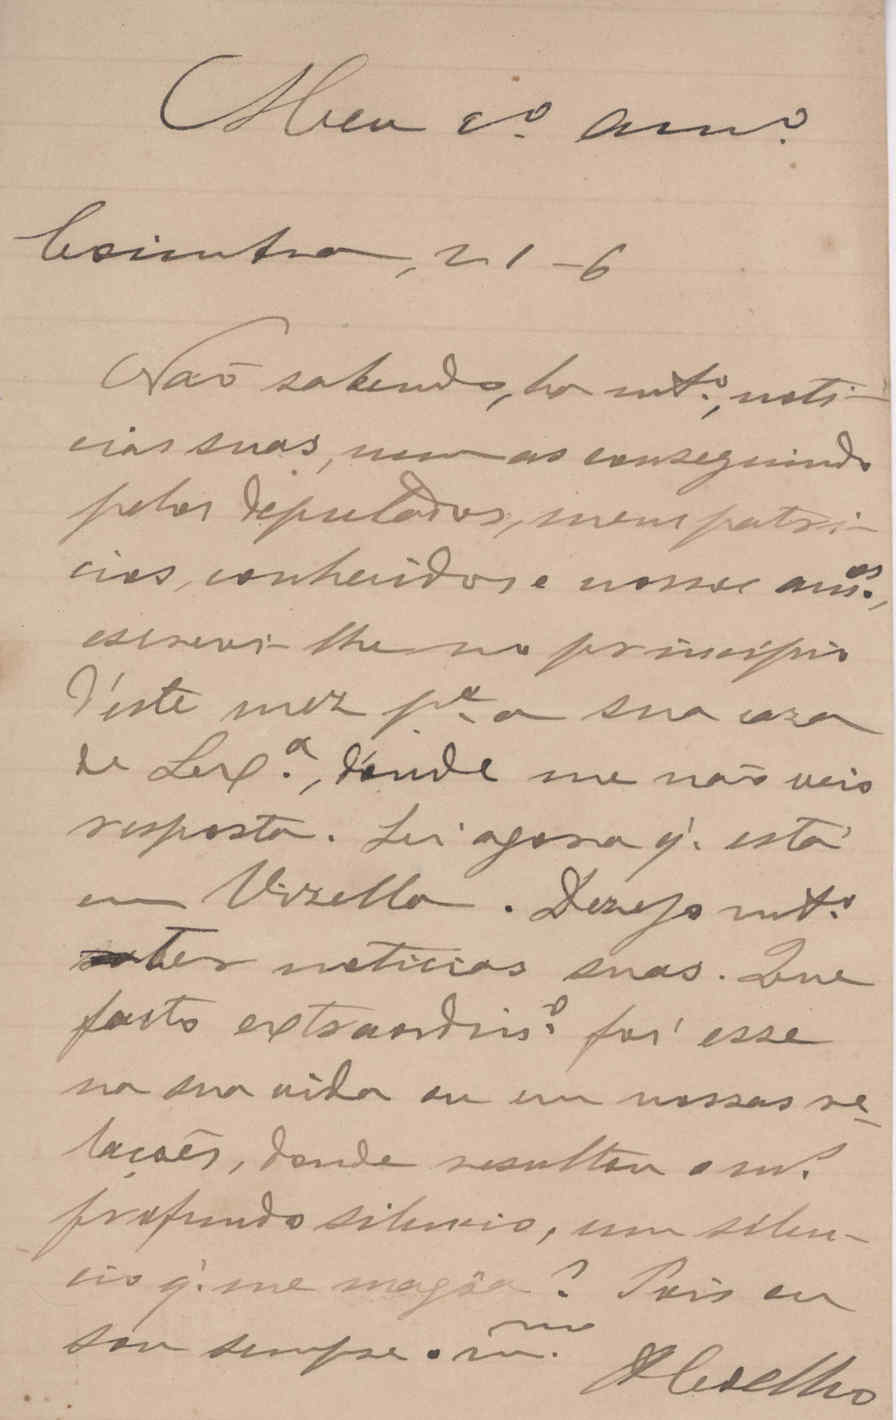 Meu c.º am.º
Coimbra, 21-6
Não sabendo, ha mt.º, noti-
cias suas, nem as conseguindo
pelos deputados, meus patri-
cios, conhecidos e nossos am.os,
escrevi-lhe no principio
d'este mez p.ª a sua caza
de Lx.ª, d'onde me não veio
resposta. Sei agora q. está
em Vizella. Dezejo mt.º
saber noticias suas. Que
facto extraordin.º foi esse
na sua vida ou em nossas re-
lações, donde resultou o seu
profundo silencio, um silen-
cio q. me magôa? Pois eu
sou sempre o m.mo
A Coelho